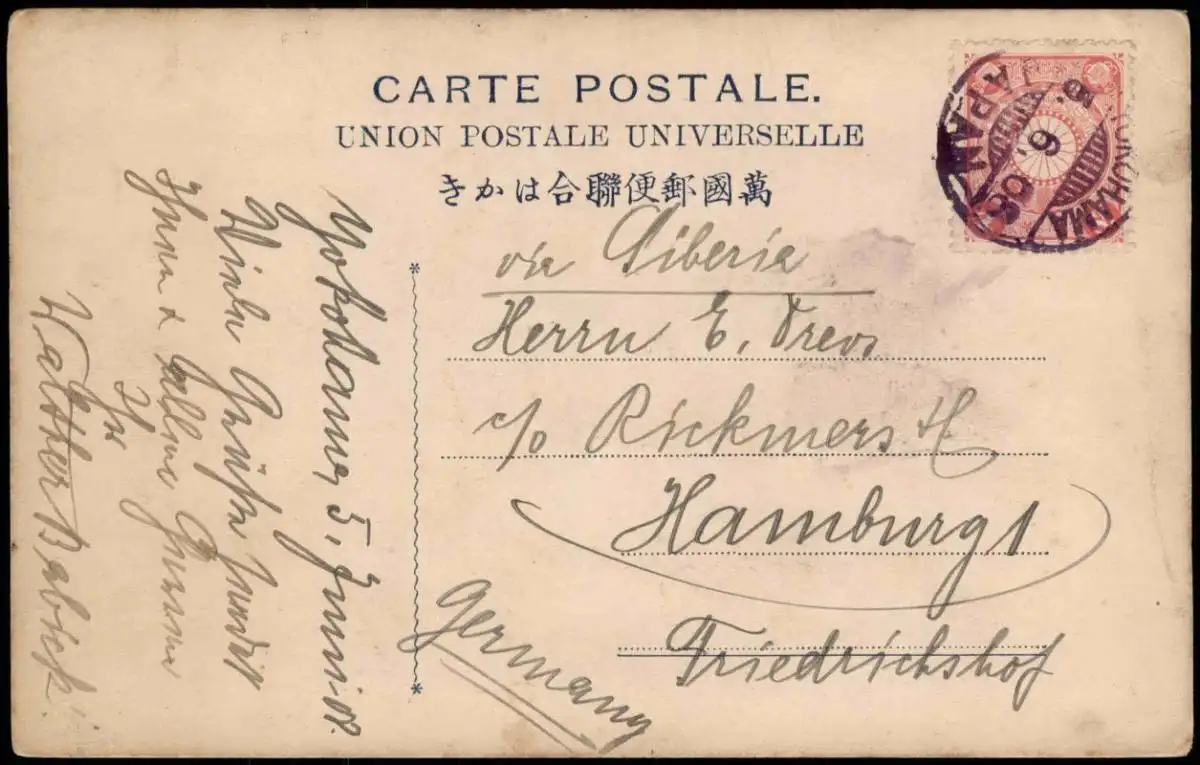 CARTE POSTALE.
UNION POSTALE UNIVERSELLE
きかは合聯便郵國萬
YOKOHAMA
JAPAN
5. 6. 08
via Siberia
Herrn E. Drevs
c/o Rickmers &
Hamburg 1
Friedrichshof
Germany
Yokohama, 5. Juni 08.
Viele Grüße sendet
Ihnen &
Ihr
Walther Babick!